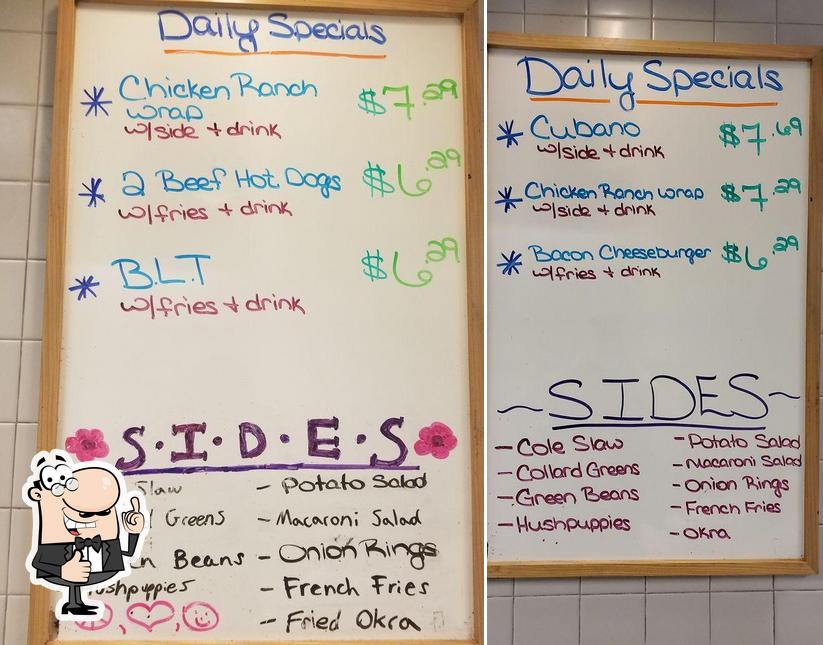 Daily Specials
* Chicken Ranch $7.29
wrap
w/side + drink
* 2 Beef Hot Dogs $6.29
w/fries + drink
* B.L.T $6.29
w/fries + drink
S·I·D·E·S
Slaw - Potato Salad
Greens - Macaroni Salad
Beans - Onion Rings
- French Fries
- Fried Okra
Daily Specials
* Cubano $7.69
w/side + drink
* Chicken Ranch wrap $7.29
w/side + drink
* Bacon Cheeseburger $6.29
w/fries + drink
~SIDES~
- Cole Slaw - Potato Salad
- Collard Greens - Macaroni Salad
- Green Beans - Onion Rings
- Hushpuppies - French Fries
- Okra